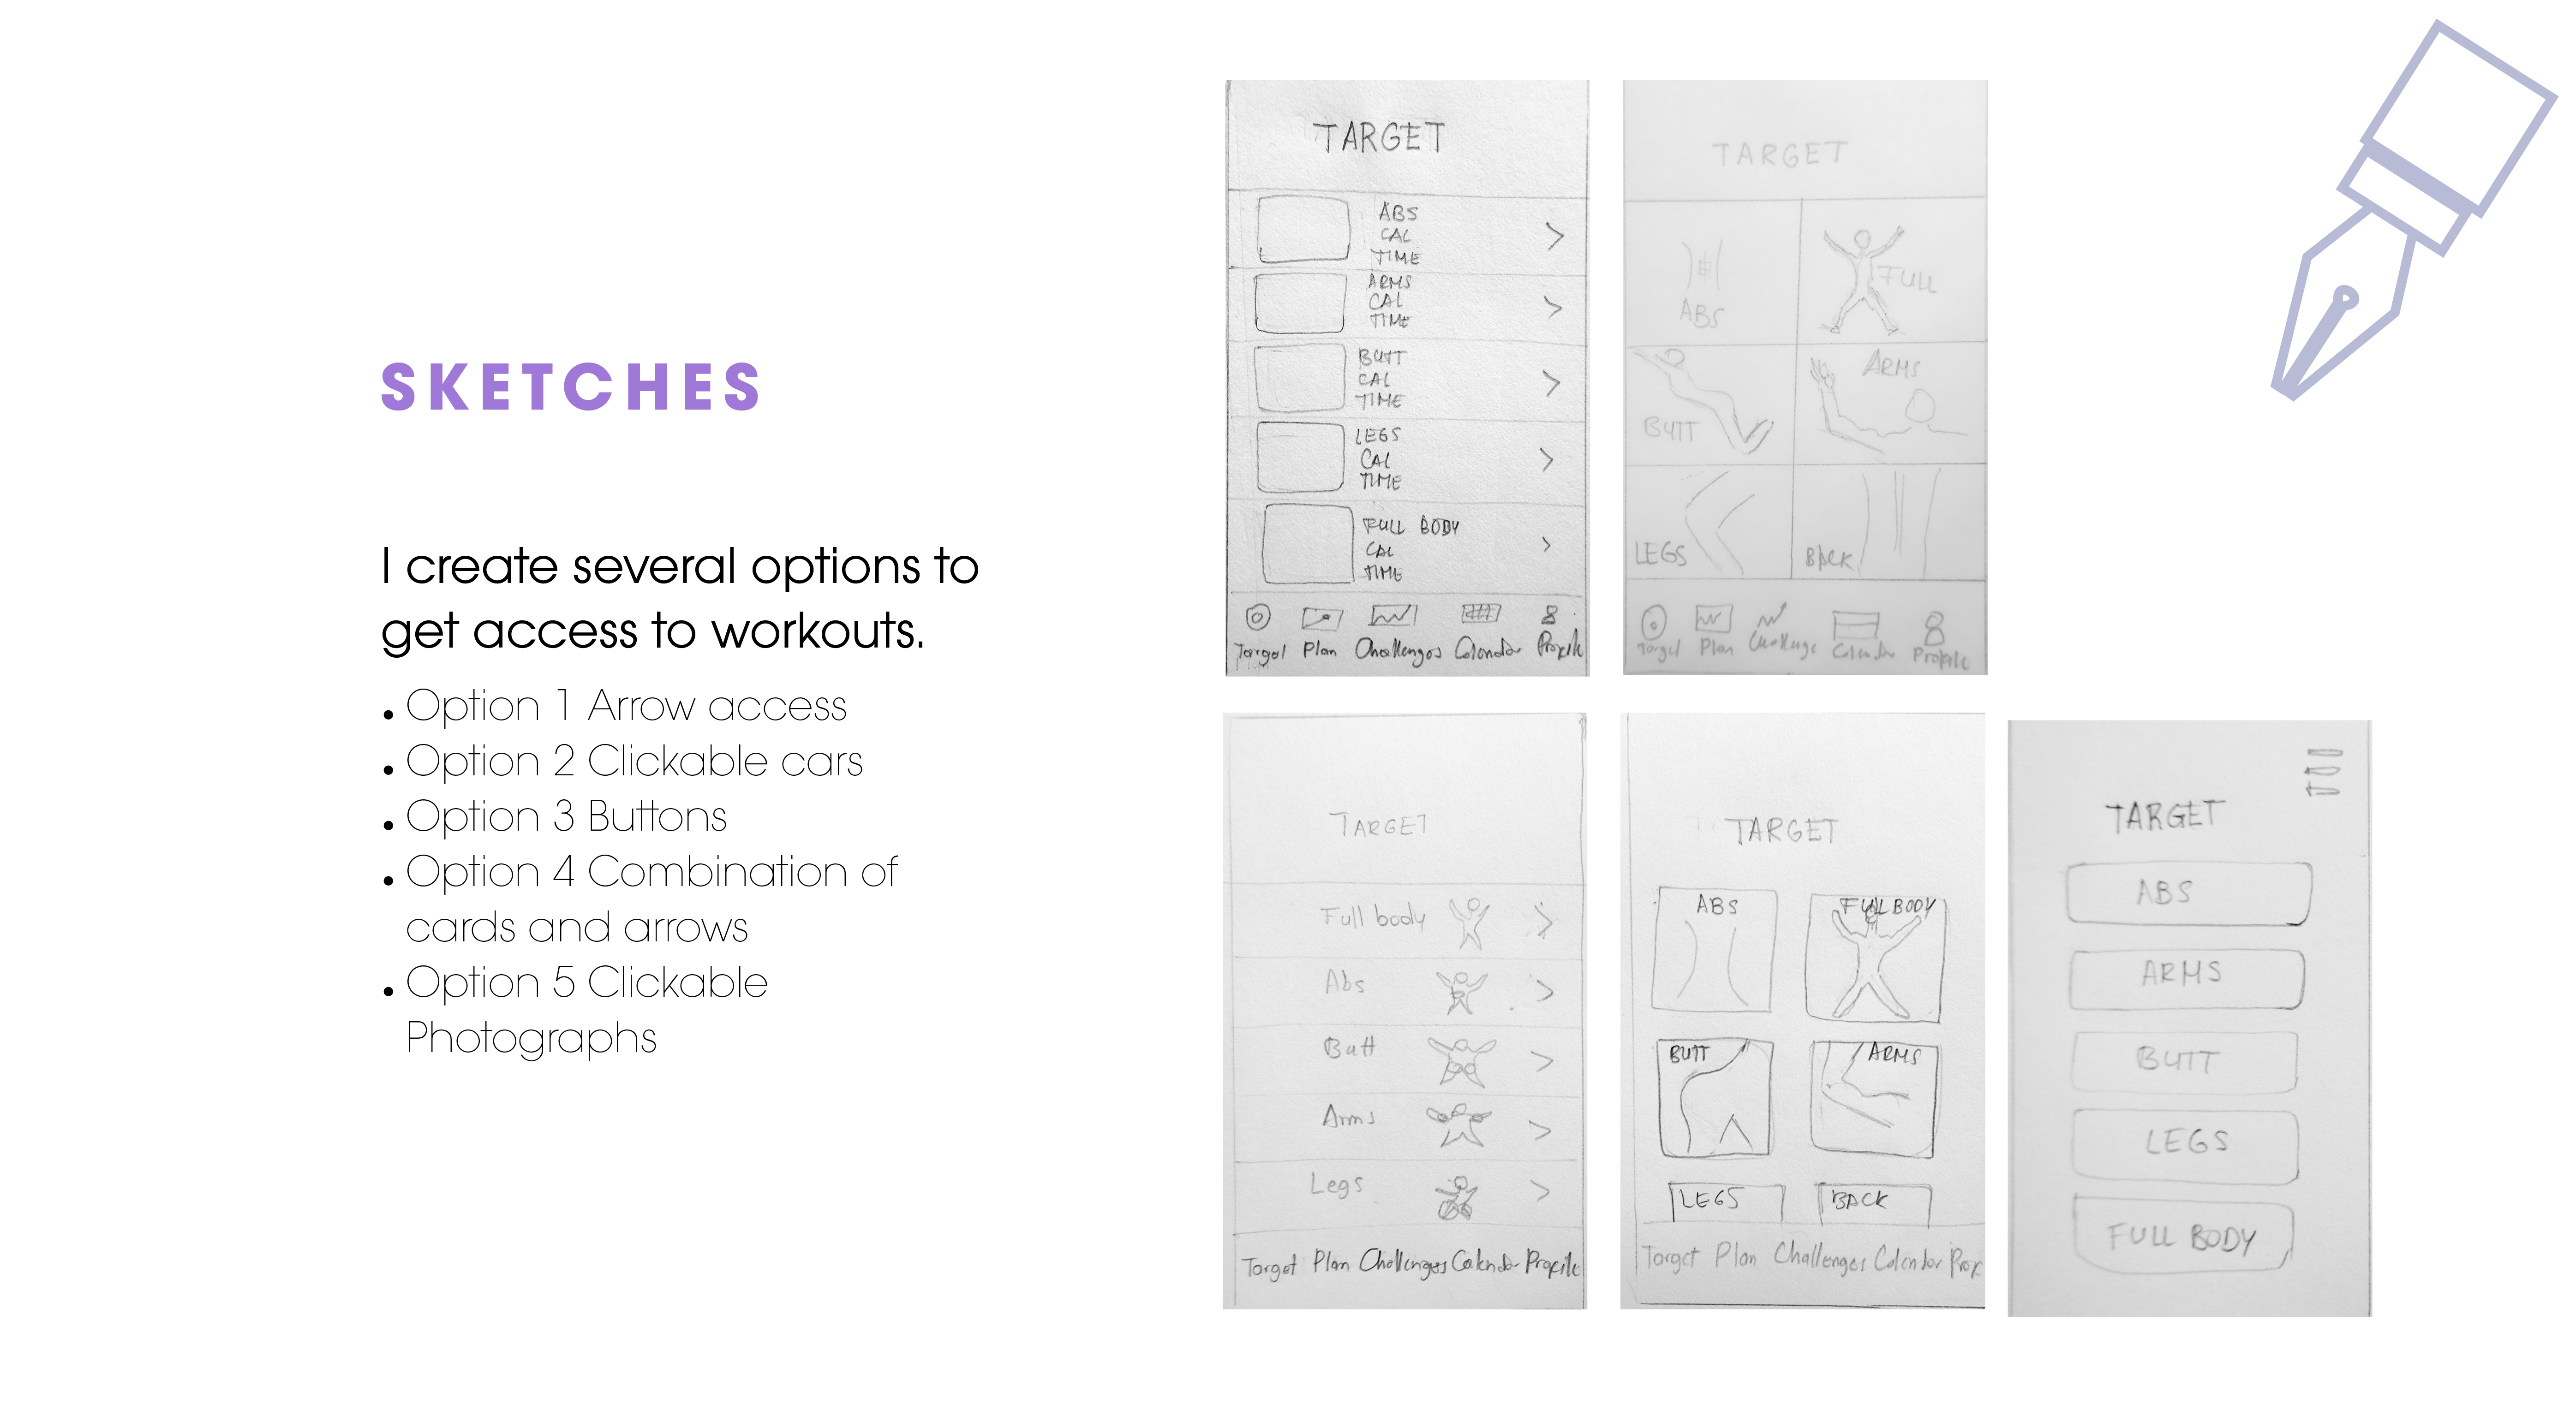 SKETCHES
I create several options to
get access to workouts.
• Option 1 Arrow access
• Option 2 Clickable cars
• Option 3 Buttons
• Option 4 Combination of
cards and arrows
• Option 5 Clickable
Photographs
TARGET
ABS
CAL
TIME
ARMS
CAL
TIME
BUTT
CAL
TIME
LEGS
CAL
TIME
FULL BODY
CAL
TIME
Target Plan Challenges Calendar Profile
TARGET
ABS
FULL
BUTT
ARMS
LEGS
BACK
Target Plan Challenge Calendar Profile
TARGET
Full body
Abs
Butt
Arms
Legs
Target Plan Challenges Calendar Profile
TARGET
ABS
FULL BODY
BUTT
ARMS
LEGS
BACK
Target Plan Challenges Calendar Prof
TARGET
ABS
ARMS
BUTT
LEGS
FULL BODY